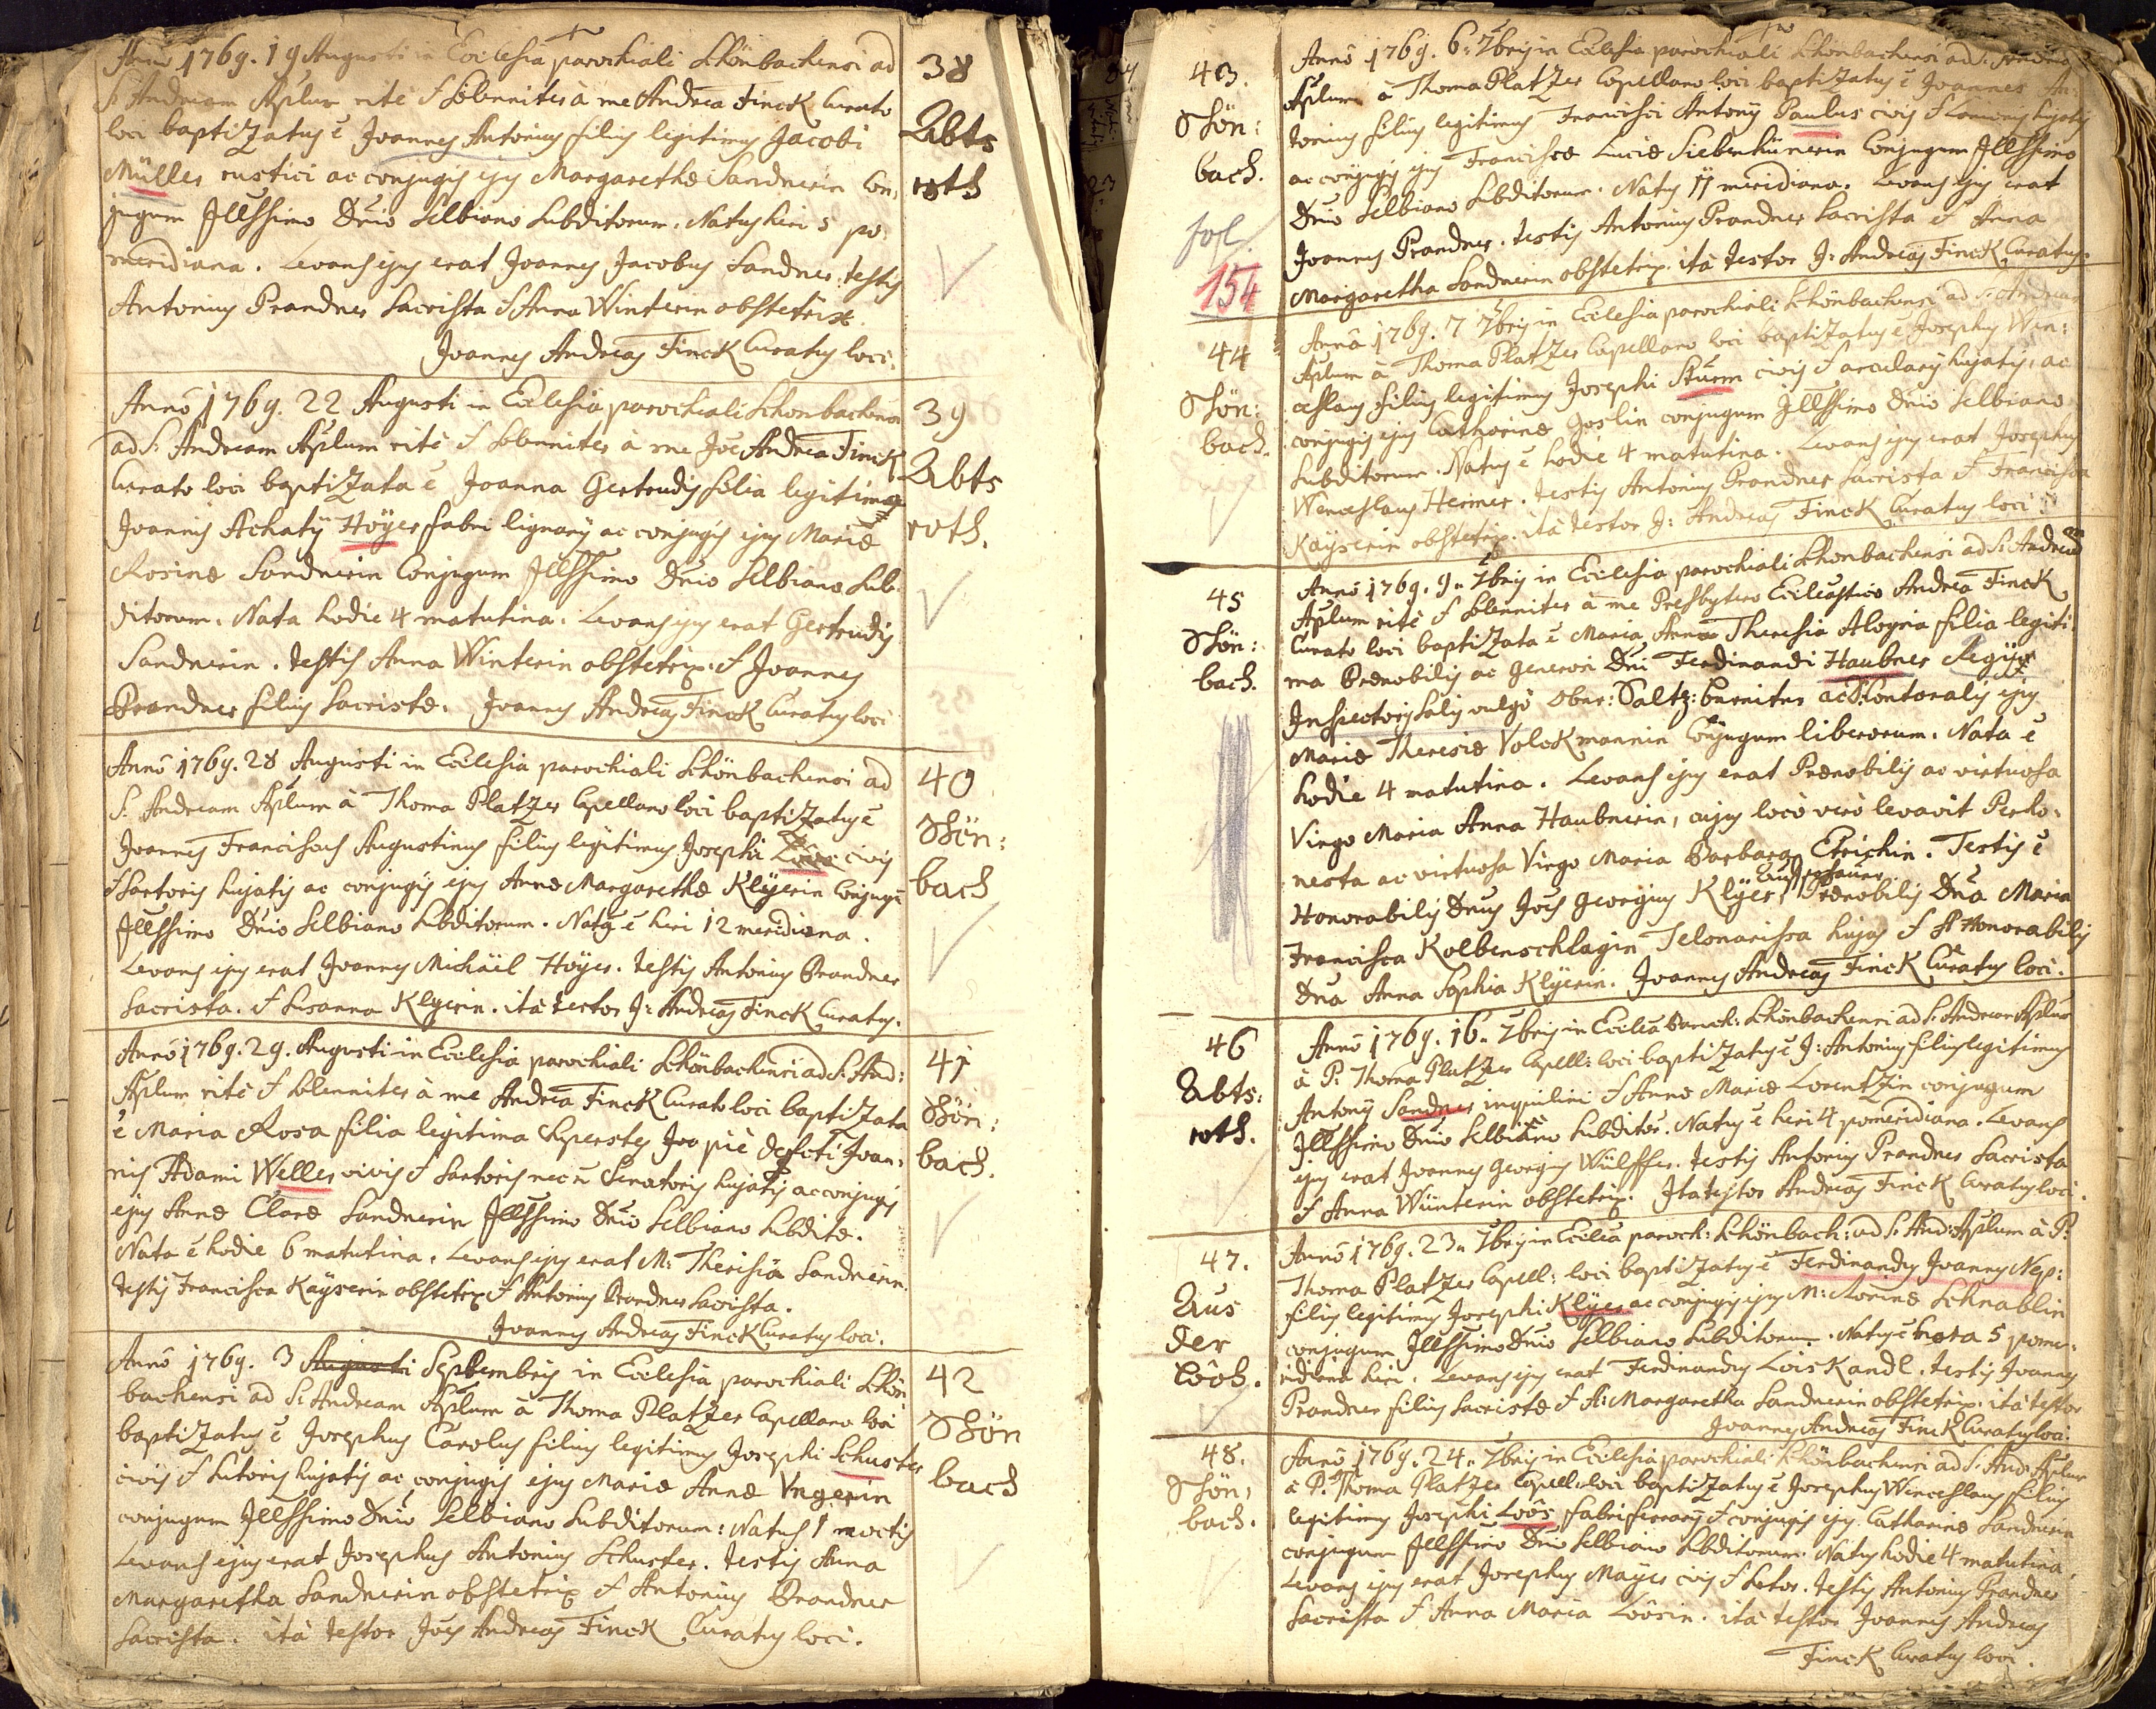 Anno 1769. 19 Augusti in Ecclesia parochiali Schönbachensi ad
S: Andream Aplum rité & solenniter à me Andrea Finck Curato
loci baptizatus ē Joannes Antonius filius legitimus Jacobi
Müller rustici ac conjugis ejus Margarethæ Sandnerin Con,
jugum Illssimo Dnio Selbiano Subditorum. Natus heri 5 po,
meridiana. Levans ejus erat Joannes Jacobus Sandner. testis
Antonius Brandner Sacrista & Anna Winterin obstetrix.
Joannes Andreas Finck Curatus loci.
38
Abts
roth
Anno 1769. 22 Augusti in Ecclesia parochiali Schönbachensi
ad S: Andream Aplum rité & solenniter à me Joe Andrea Finck
Curato loci baptizata ē Joanna Gertrudis filia legitima
Joannis Achatÿ Höyer fabri lignarÿ ac conjugis ejus Mariæ
Rosinæ Sandnerin Conjugum Illssimo Dnio Selbiano Sub,
ditorum. Nata hodie 4 matutina. Levans ejus erat Gertrudis
Sandnerin. testis Anna Winterin obstetrix. & Joannes
Brandner filius Sacristæ. Joannes Andreas Finck Curatus loci
39
Abts
roth.
Anno 1769. 28 Augusti in Ecclesia parochiali Schönbachensi ad
S: Andream Aplum à Thoma Platzer Capellano loci baptizatus ē
Joannes Franciscus Augustinus filius legitimus Josephi Loôs civis
& Sartoris hujatis ac conjugis ejus Annæ Margarethæ Klÿerin Conjugū
Illssimo Dnio Selbiano Subditorum. Natus ē heri 12 meridiana.
Levans ejus erat Joannes Michaël Höyer. testis Antonius Brandner
Sacrista. & Susanna Klyerin. ità testor J: Andreas Finck Curatus.
40
Schön:
bach
Anno 1769. 29. Augusti in Ecclesia parochiali Schönbachensi ad S: And:
Aplum rité & solenniter à me Andrea Finck Curato loci baptizata
ē Maria Rosa filia legitima superstes Joo piè defcti Joan,
nis Adami Weller civis & Sartoris nec ñ Senatoris hujatis ac conjugis
ejus Annæ Claræ Sandnerin Illssimo Dnio Selbiano Subditæ.
Nata ē hodie 6 matutina. Levans ejus erat M: Theresia Sandnerin.
testis Francisca Kaÿserin obstetrix & Antonius Brandner Sacrista.
Joannes Andreas Finck Curatus loci.
41
Schön:
bach.
Anno 1769. 3 Augusti Septembris in Ecclesia parochiali Schön
bachensi ad S: Andream Aplum à Thoma Platzer Capellano loci
baptizatus ē Josephus Carolus filius legitimus Josephi Schuster
civis & Sutoris hujatis ac conjugis ejus Mariæ Annæ Vngerin
conjugum Illssimo Dnio Selbiano Subditorum: Natus 1 noctis
Levans ejus erat Josephus Antonius Schuster. testis Anna
Margaretha Sandnerin obstetrix & Antonius Brandner
Sacrista. ità testor Joes Andreas Finck Curatus loci.
42
Schön
bach
43.
Schön:
bach.
fol.
154
Anno 1769. 6. 7bris in Ecclesia parochiali Schönbachensi ad S: Andream
Aplum à Thoma Platzer Capellano loci baptizatus ē Joannes An,
tonius filius legitimus Francisci Antonÿ Paulus civis & hujatis
ac conjugis ejus Franciscæ Luciæ Siebenhünerin Conjugum Illssimo
Dnio Selbiano Subditorum. Natus 11 meridiana. Levans ejus erat
Joannes Brandner. testis Antonius Brandner Sacrista & Anna
Margaretha Sandnerin obstetrix. ità testor J: Andreas Finck Curatus.
44
Schön:
bach.
Anno 1769. 7 7bris in Ecclesia parochiali Schönbachensi ad S: Andream
Aplum à Thoma Platzer Capellano loci baptizatus ē Josephus Wen:
ceslaus filius legitimus Josephi Sturm civis & arcularÿ hujatis, ac
conjugis ejus Catharinæ Goslin conjugum Illssimo Dnio Selbiano
Subditorum. Natus ē hodie 4 matutina. Levans ejus erat Josephus
Wenceslaus Hermer. testis Antonius Brandner Sacrista & Francisca
Kaÿserin obstetrix. ità testor J: Andreas Finck Curatus loci.
45
Schön:
bach.
Anno 1769. 9. 7bris in Ecclesia parochiali Schönbachensi ad S: Andream
Aplum rité & solenniter à me Presbytero Andrea Finck
Curato loci baptizata ē Maria Anna Theresia Aloysia filia legiti,
ma Prænobilis ac generosi Dni Ferdinandi Haubner Regÿ
Inspectoris Salis vulgò Ober: Saltz: ac Contoralis ejus
Mariæ Theresiæ Volckmannin Conjugum liberorum. Nata ē
hodie 4 matutina. Levans ejus erat Prænobilis ac virtuosa
Virgo Maria Anna Haubnerin, cujus locò verò levavit Perho,
nesta ac virtuosa Virgo Maria Barbara Etrichin. Testis ē
Honorabilis Dnus Joes Georgius Klÿer, Prænobilis Dna Maria
Francisca Kolbenschlagin Telonarissa hujas & Honorabilis
Dna Anna Sophia Klÿerin. Joannes Andreas Finck Curatus loci.
46
Abts:
roth.
Anno 1769. 16. 7bris in Ecclia Paroch: Schönbachensi ad S: Andream Aplum
à P. Thoma Platzer Capell: loci baptizatus ē J: Antonius filius legitimus
Antonÿ Sandner inquilini & Annæ Mariæ Lorentzin conjugum
Illssimo Dnio Selbiano Subditor. Natus ē heri 4 pomeridiana. Levans
ejus erat Joannes Georgius Wülffer. testis Antonius Brandner Sacrista
& Anna Wünterin obstetrix. Ita testor Andreas Finck Curatus loci.
47.
Aus
der
Lôch.
Anno 1769. 23. 7bris in Ecclia paroch: Schönbach: ad S: And: Aplum à P.
Thoma Platzer Capell: loci baptizatus ē Ferdinandus Joannes Nep:
filius legitimus Josephi Klÿer ac conjugis ejus M: Rosinæ Schnablin
conjugum Illssimo Dnio Selbiano Subditorum. Natus ē hora 5 pome,
ridiana heri. Levans ejus erat Ferdinandus Lois Kandl. testis Joannes
Brandner filius Sacristæ & A: Margaretha Sandnerin obstetrix. ità testor
Joannes Andreas Finck Curatus loci.
48.
Schön,
bach.
Anno 1769. 24. 7bris in Ecclesia parochiali Schönbachensi ad S: And: Aplum
à P. Thoma Platzer Capell: loci baptizatus ē Josephus Wenceslaus filius
legitimus Josephi Loôs fabri ferrarÿ & conjugis ejus Catharinæ Sandnerin
conjugum Illssimo Dnio Selbiano Subditorum. Natus hodie 4 matutina.
Levans ejus erat Josephus Mayer civis & Sutor. testis Antonius Brandner
Sacrista & Anna Maria Loôsin. ità testor Joannes Andreas
Finck Curatus loci.